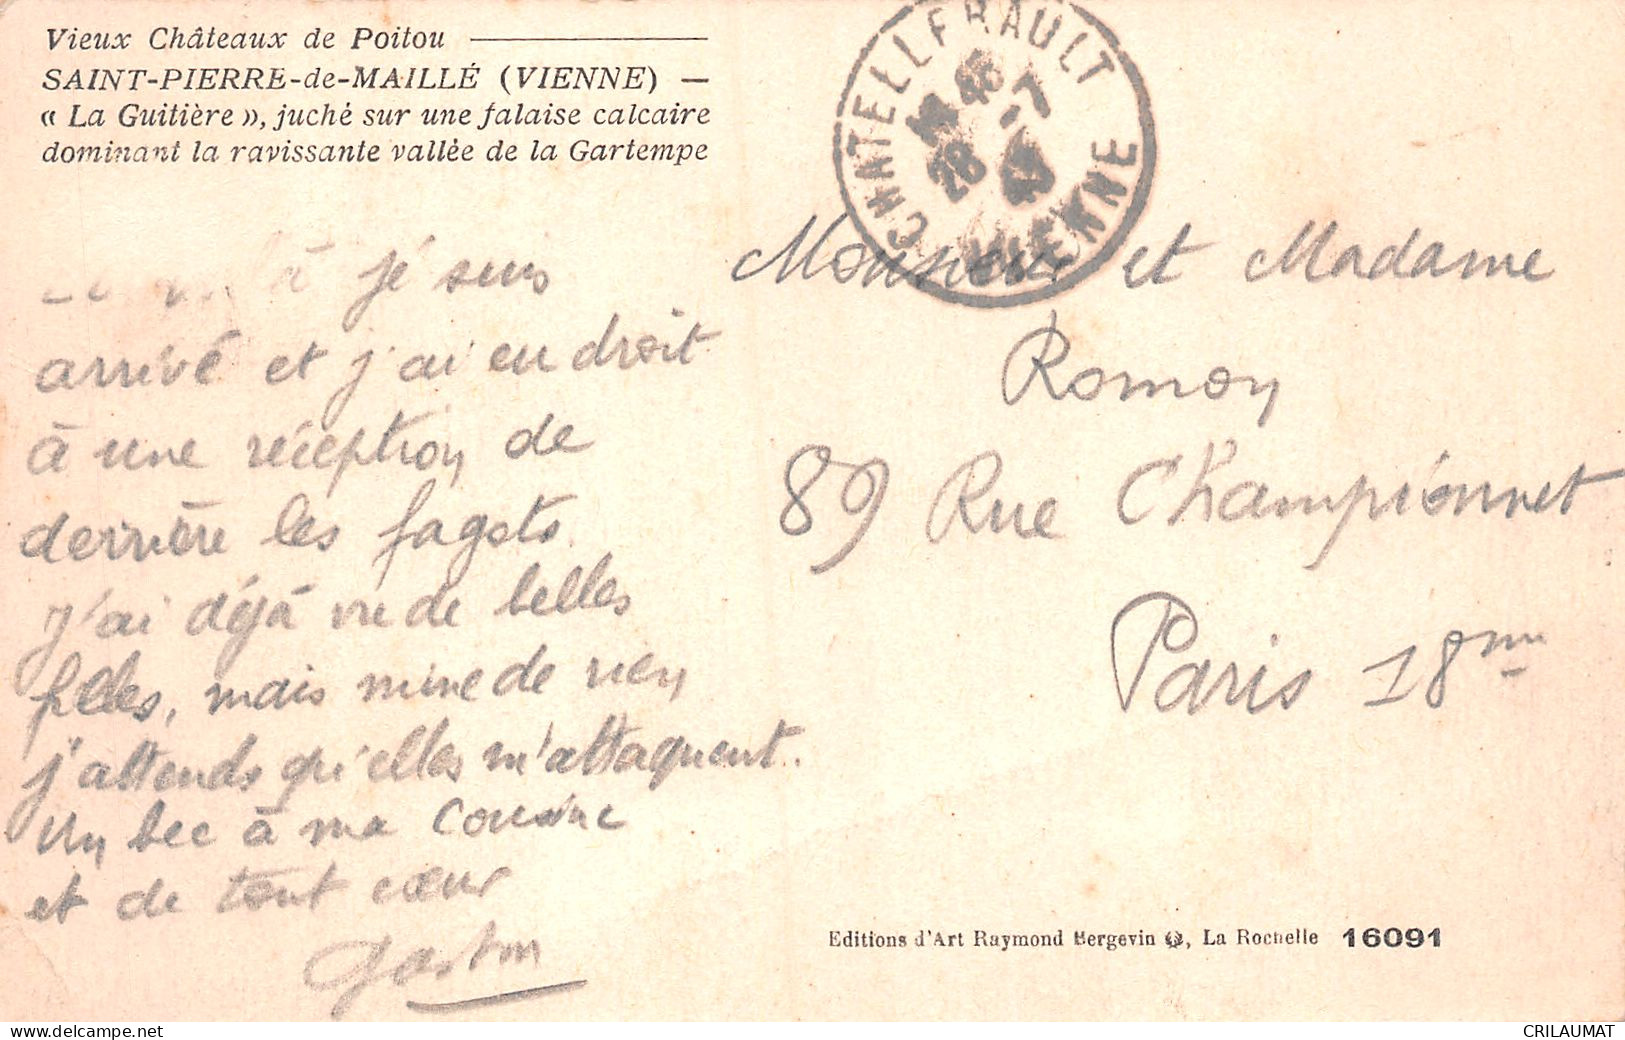 Vieux Châteaux de Poitou
SAINT-PIERRE-de-MAILLÉ (VIENNE) —
« La Guitière », juché sur une falaise calcaire
dominant la ravissante vallée de la Gartempe
CHATELLERAULT
45
28 -7
VIENNE
je suis
arrivé et j'ai eu droit
à une réception de
derrière les fagots.
J'ai déjà vu de belles
filles, mais mine de rien
j'attends qu'elles m'attaquent.
Un bec à ma cousine
et de tout cœur
Gaston
Monsieur et Madame
Romon
89 Rue Championnet
Paris 18me
Editions d'Art Raymond Bergevin, La Rochelle 16091
www.delcampe.net
CRILAUMAT